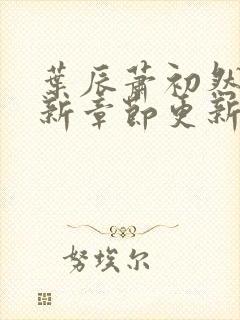 葉辰蕭初然
新章節更新
努埃尔